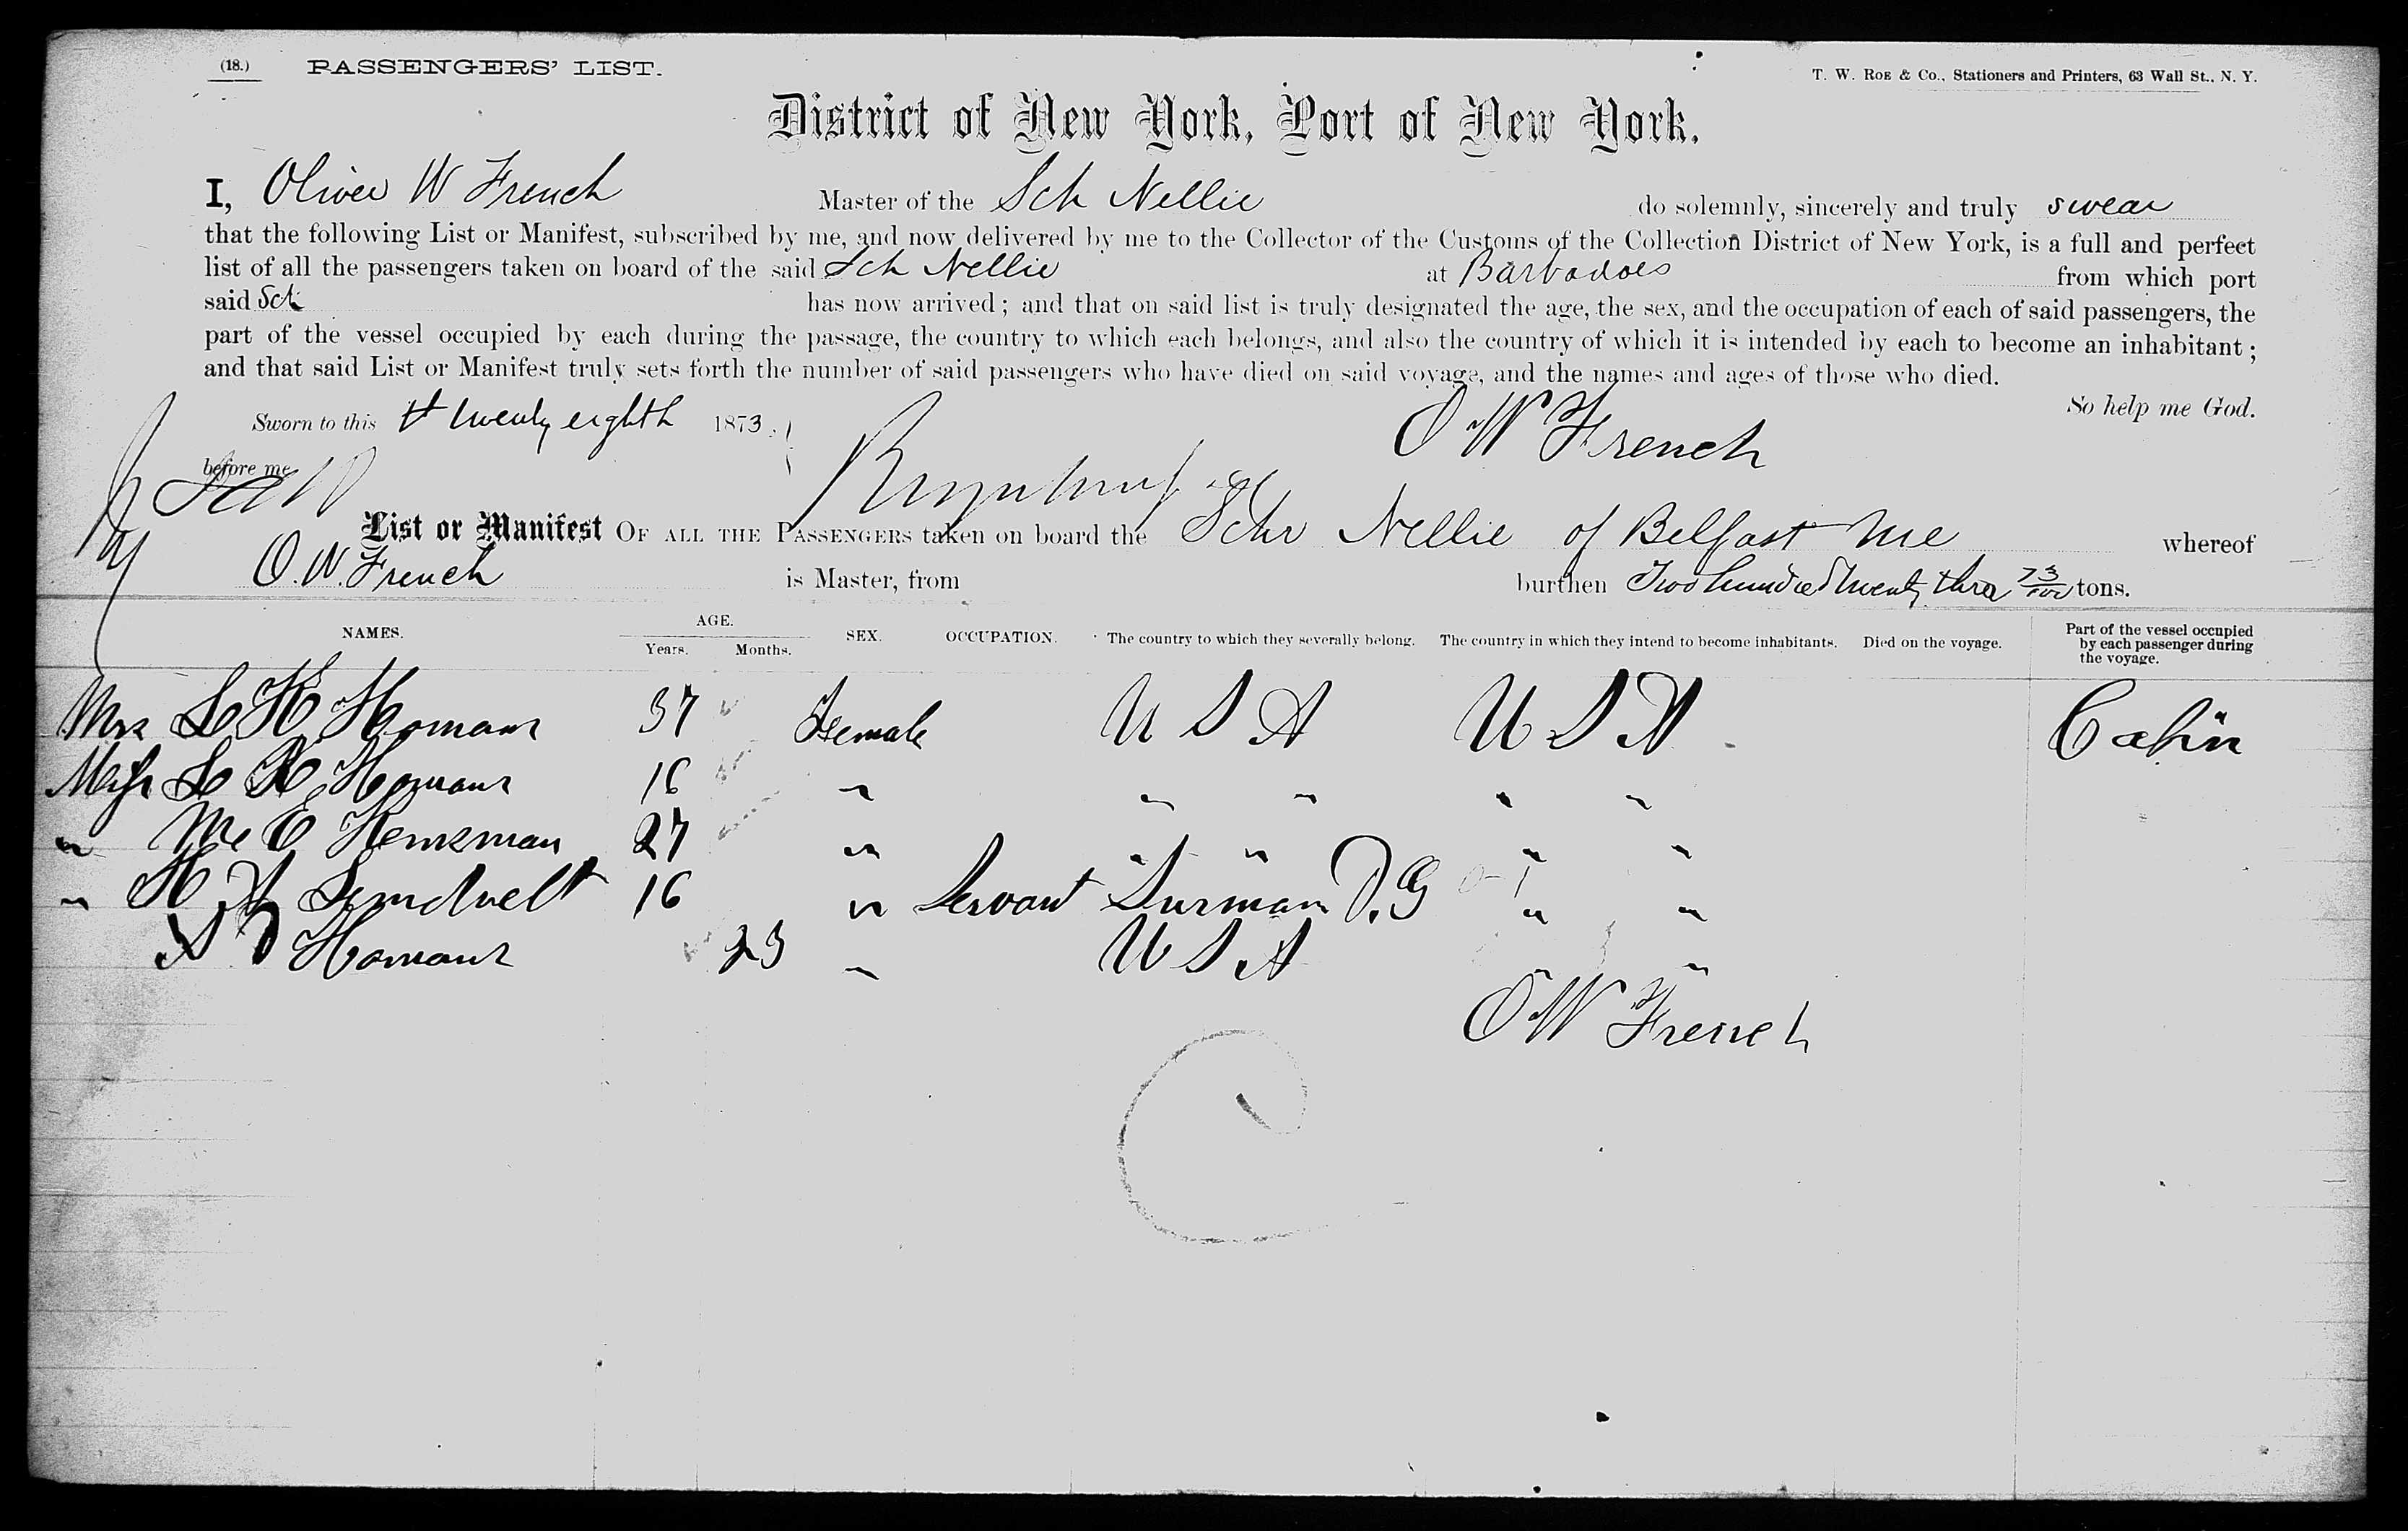 (18.) PASSENGERS' LIST. T. W. ROE & Co., Stationers and Printers, 63 Wall St., N. Y.
District of New York, Port of New York.
I, Oliver W French Master of the Sch Nellie do solemnly, sincerely and truly swear
that the following List or Manifest, subscribed by me, and now delivered by me to the Collector of the Customs of the Collection District of New York, is a full and perfect
list of all the passengers taken on board of the said Sch Nellie at Barbadoes from which port
said Sch has now arrived; and that on said list is truly designated the age, the sex, and the occupation of each of said passengers, the
part of the vessel occupied by each during the passage, the country to which each belongs, and also the country of which it is intended by each to become an inhabitant;
and that said List or Manifest truly sets forth the number of said passengers who have died on said voyage, and the names and ages of those who died.
So help me God.
Sworn to this twenty eighth 1873. O W French
before me
List or Manifest OF ALL THE PASSENGERS taken on board the Schr Nellie of Belfast Me whereof
O. W. French is Master, from burthen Two hundred twenty three 73/100 tons.
NAMES. AGE. Years. Months. SEX. OCCUPATION. The country to which they severally belong. The country in which they intend to become inhabitants. Died on the voyage. Part of the vessel occupied by each passenger during the voyage.
Mrs L H Homans 37 Female U S A U S A Cabin
Miss L Homans 16 " " " " "
" M E 27 " " " " "
" H A 16 " Servant D. G " "
Homans 23 " U S A " "
O W French